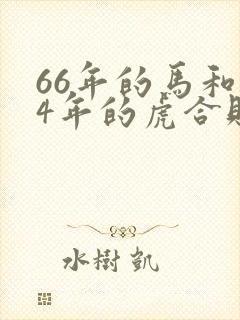 66年的馬和
4年的虎合
水樹凱